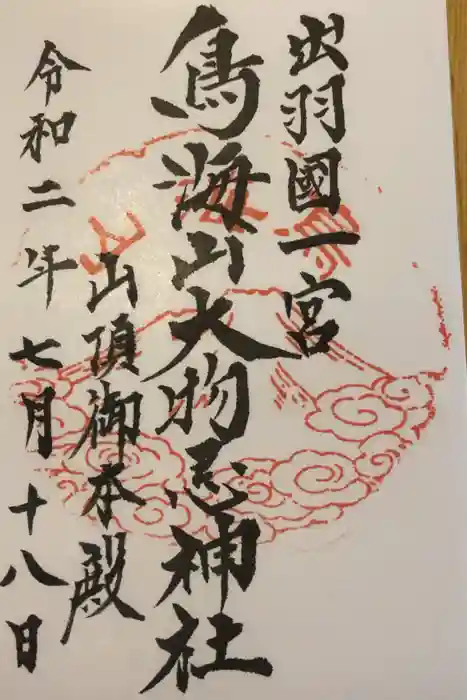 出羽國一宮
鳥海山大物忌神社
山頂御本殿
令和二年七月十八日
鳥海山